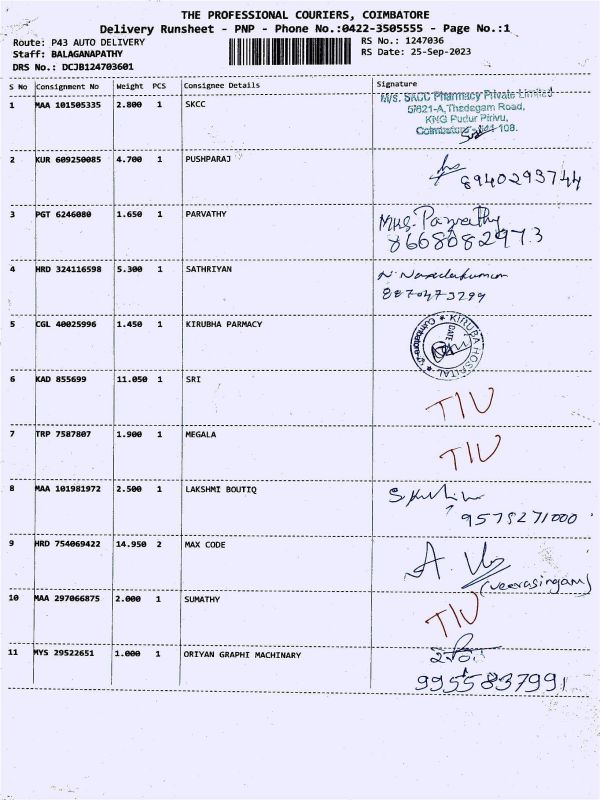 THE PROFESSIONAL COURIERS, COIMBATORE
Delivery Runsheet - PNP - Phone No.:0422-3505555 - Page No.:1
Route: P43 AUTO DELIVERY
RS No.: 1247036
Staff: BALAGANAPATHY
RS Date: 25-Sep-2023
DRS No.: DCJB124703601
S No Consignment No Weight PCS Consignee Details Signature
1 MAA 101505335 2.800 1 SKCC
M/s. SKCC Pharmacy Private Limited
5/621-A, Thadagam Road,
KNG Pudur Pirivu,
Coimbatore - 641 108.
2 KUR 609250085 4.700 1 PUSHPARAJ
8940293744
3 PGT 6246080 1.650 1 PARVATHY
Mrs. Parvathy
8668082973
4 HRD 324116598 5.300 1 SATHRIYAN
N. Nandakumar
8870473299
5 CGL 40025996 1.450 1 KIRUBHA PARMACY
KIRUBA HOSPITAL
DATE
6 KAD 855699 11.050 1 SRI
TIU
7 TRP 7587807 1.900 1 MEGALA
TIU
8 MAA 101981972 2.500 1 LAKSHMI BOUTIQ
9575271000
9 HRD 754069422 14.950 2 MAX CODE
(veerasingam)
10 MAA 297066875 2.000 1 SUMATHY
TIU
11 MYS 29522651 1.000 1 ORIYAN GRAPHI MACHINARY
9955837991